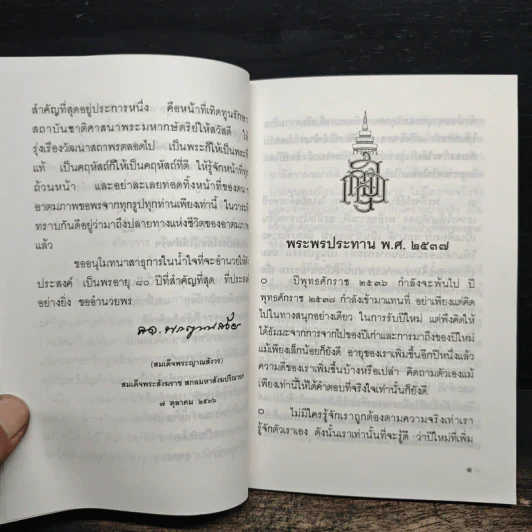 สำคัญที่สุดอยู่ประการหนึ่ง คือหน้าที่เทิดทูนรักษา
สถาบันชาติศาสนาพระมหากษัตริย์ให้สวัสดี ให้
รุ่งเรืองวัฒนาสถาพรตลอดไป เป็นพระก็ให้เป็นพระที่
แท้ เป็นคฤหัสถ์ก็ให้เป็นคฤหัสถ์ที่ดี ให้รู้จักหน้าที่
ถ้วนหน้า และอย่าละเลยทอดทิ้งหน้าที่ของตน
อาตมภาพขอพรจากทุกรูปทุกท่านเพียงเท่านี้ ในวาระ
ทราบกันดีอยู่ว่ามาถึงปลายทางแห่งชีวิตของอาตมภาพ
แล้ว
ขออนุโมทนาสาธุการในน้ำใจที่จะอำนวยให้
ประสงค์ เป็นพรอายุ ๘๐ ปีที่สำคัญที่สุด ที่ประสงค์
อย่างยิ่ง ขออำนวยพร
(สมเด็จพระญาณสังวร)
สมเด็จพระสังฆราช สกลมหาสังฆปริณายก
๗ ตุลาคม ๒๕๓๖
พระพรประทาน พ.ศ. ๒๕๓๗
๐ ปีพุทธศักราช ๒๕๓๖ กำลังจะพ้นไป ปี
พุทธศักราช ๒๕๓๗ กำลังเข้ามาแทนที่ อย่าเพียงแต่คิด
ไปในทางสนุกอย่างเดียว ในการรับปีใหม่ แต่พึงคิดให้
ได้ธัมมะจากการจากไปของปีเก่าและการมาถึงของปีใหม่
แม้เพียงเล็กน้อยก็ยังดี อายุของเราเพิ่มขึ้นอีกปีหนึ่งแล้ว
ความดีของเราเพิ่มขึ้นบ้างหรือเปล่า คิดถามตัวเองแม้
เพียงเท่านี้ให้ได้คำตอบที่จริงใจเท่านั้นก็ยังดี.
๐ ไม่มีใครรู้จักเราถูกต้องตามความจริงเท่าเรา
รู้จักตัวเราเอง ดังนั้นเราเท่านั้นที่จะรู้ดี ว่าปีใหม่ที่เพิ่ม
๑